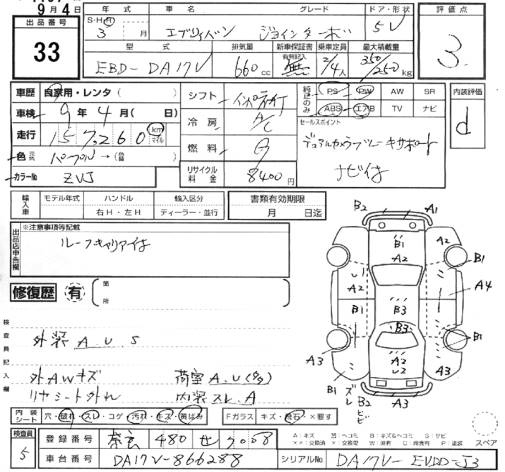 9月4
出品番号 年式 車名 グレード ドア・形状 評価点
33 S・H・R 3 月 エブリィバン ジョインターボ 5V 3.
型式 排気量 新車保証書 有無記入 乗車定員 最大積載量
EBD-DA17V 660cc 無 2/4人 350/250kg
車歴 自家用・レンタ( ) シフト インパネAT 純正のみ PS PW AW SR 内装評価
車検 9年4月( 日) 冷房 A/C ABS エアB TV ナビ d
走行 157260 km マイル 燃料 G セールスポイント
色 元色 パープル→(色替 ) デュアルカメラブレーキサポート
カラーNo ZVJ リサイクル料金 8400円 ナビ付
輸入車 モデル年式 ハンドル 輸入区分 書類有効期限
右H・左H ディーラー・並行 月 日迄
出品店申告欄 ※注意事項等記載
ルーフキャリア付
修復歴 有 箇所
検査員記入欄
外装 A.U.S
外AWキズ 荷室A.U(多)
リヤシート外れ 内装スレ.A
内装シート 穴・破れ・スレ・コゲ・汚れ・キズ・黄ばみ Fガラス キズ・飛石・×要す
検査員 5 登録番号 奈良 480 せ 2068
車台番号 DA17V-866288 シリアルNo DA17V-EVDD-J3
B2 A1
B1 A2 B1
A2
U1 A2 A2
A2 B3 A4
B3
A3 A2 U2 B1 A3
B1 ズレ B2 ビビ A3
スペア